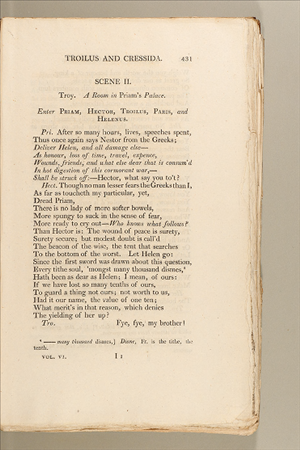 TROILUS AND CRESSIDA. 431
SCENE II.
Troy. A Room in Priam's Palace.
Enter PRIAM, HECTOR, TROILUS, PARIS, and
HELENUS.
Pri. After so many hours, lives, speeches spent,
Thus once again says Nestor from the Greeks;
Deliver Helen, and all damage else—
As honour, loss of time, travel, expence,
Wounds, friends, and what else dear that is consum'd
In hot digestion of this cormorant war,—
Shall be struck off:—Hector, what say you to't?
Hect. Though no man lesser fears the Greeks than I,
As far as toucheth my particular, yet,
Dread Priam,
There is no lady of more softer bowels,
More spungy to suck in the sense of fear,
More ready to cry out—Who knows what follows?
Than Hector is: The wound of peace is surety,
Surety secure; but modest doubt is call'd
The beacon of the wise, the tent that searches
To the bottom of the worst. Let Helen go:
Since the first sword was drawn about this question,
Every tithe soul, 'mongst many thousand dismes,'
Hath been as dear as Helen; I mean, of ours:
If we have lost so many tenths of ours,
To guard a thing not ours; not worth to us,
Had it our name, the value of one ten;
What merit's in that reason, which denies
The yielding of her up?
Tro. Fye, fye, my brother!
' —— many thousand dismes,] Disme, Fr. is the tithe, the
tenth.
VOL. VI. I i